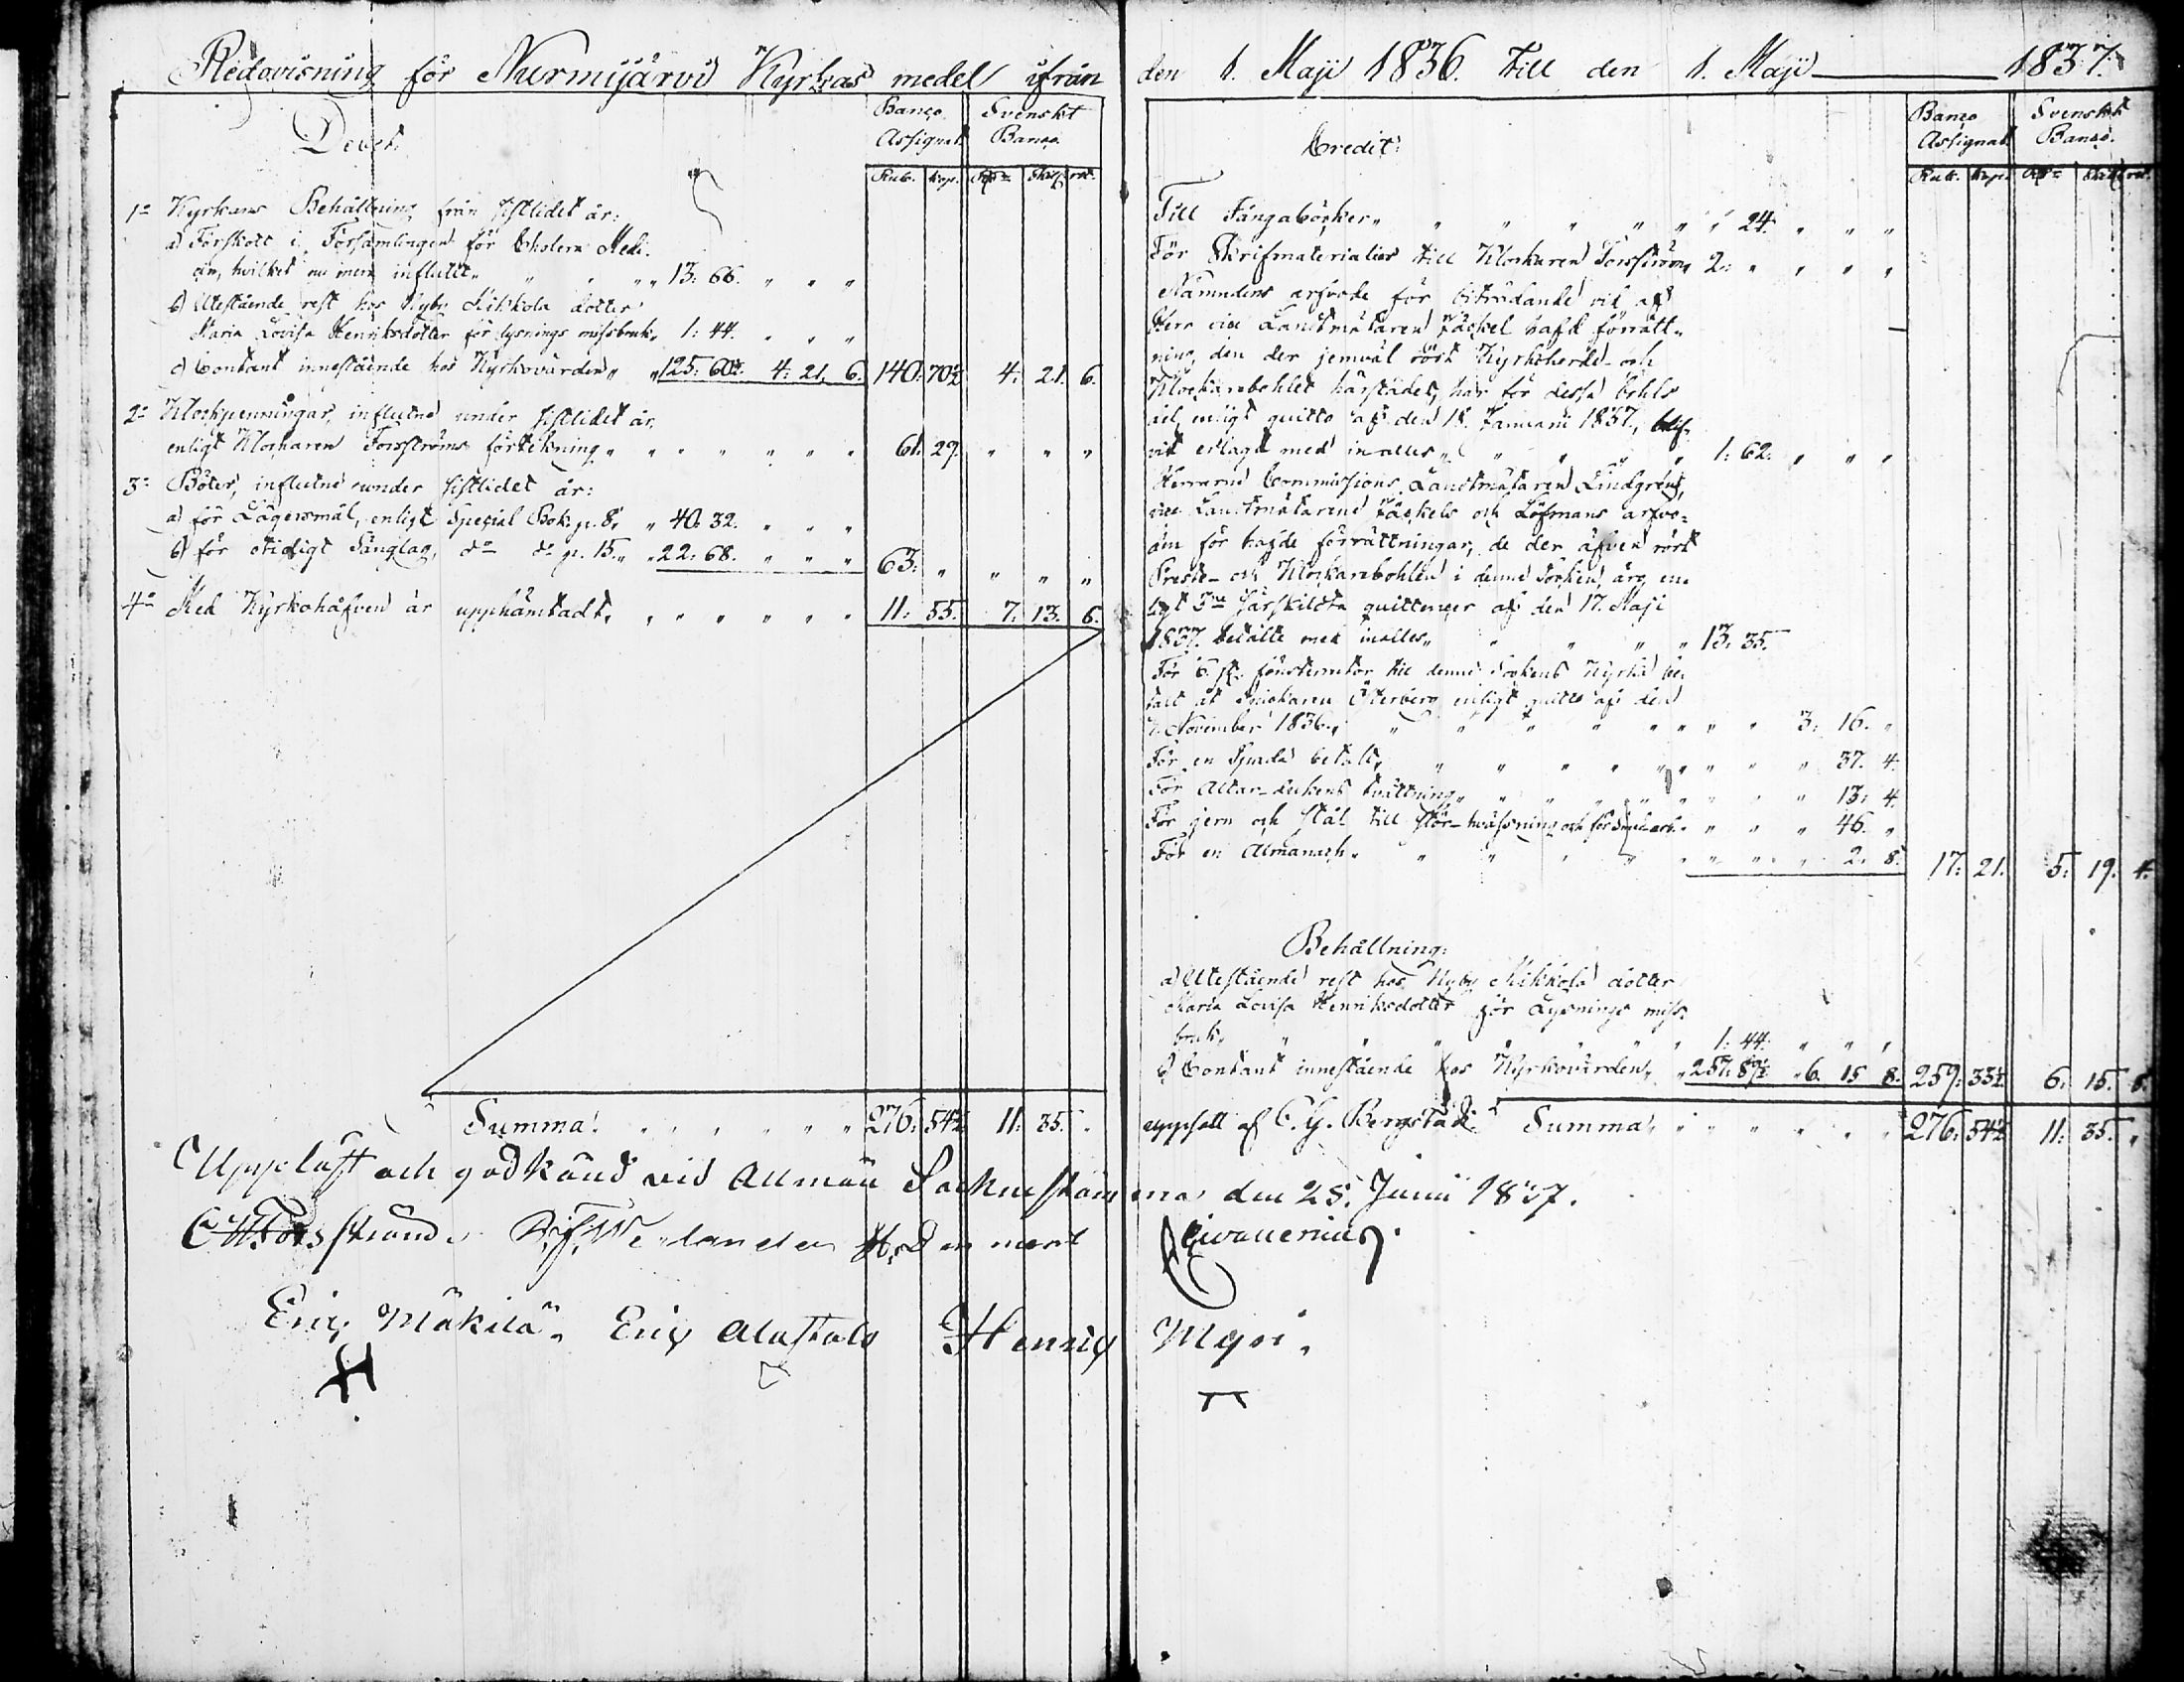 Redovisning för Nurmijärvi Kyrkas medel ifrån den 1. Maji 1836. till den 1. Maji 1837.
Debet.
Banco Assignat. Svenskt Banco.
Rub. Kop. Rdr Skill. rst.
1o Kyrkans Behållning från sistlidet år:
a) Förskott i Församlingen för Cholera Medi-
cin, hvilket nu mera influtit „ „ „ „ 13: 66. „ „ „
b) Utestående rest hos Nyby Mikkola dotter
Maria Lovisa Henriksdotter för lysnings missbruk, 1: 44. „ „ „
c) Contant innestående hos Kyrkovärden „ „ 125: 60½. 4: 21. 6. 140: 70½ 4: 21. 6.
2o Klockpenningar, influtne under sistlidet år,
enligt Klockaren Forsströms förtekning „ „ „ „ „ „ „ 61. 29. „ „ „
3o Böter, influtne under sistlidet år:
a) för Lägersmål, enligt Special Bok. p. 8, „ 40. 32. „ „ „
b) för otidigt Sänglag, do do p. 15. „ „ 22: 68. „ „ „ 63: „ „ „ „
4o Med Kyrkohåfven är upphämtadt, „ „ „ „ „ „ 11: 55. 7. 13. 6.
Summa: „ „ „ „ „ „ 276: 54½ 11: 35. „
Credit:
Banco Assignat. Svenskt Banco.
Rub. Kop. Rdr Skill. rst.
Till Fångaböcker „ „ „ „ „ „ „ 24. „ „ „
För Skrifmaterialier till Klockaren Forsström, 2: „ „ „ „
Nämndens arfvode för biträdande vid af
Herr vice Landtmätaren Fäckel hafd förrätt-
ning, den der jemväl rört Kyrkoherde- och
Klockarebohlet härstädes, har för dessa bohls
del, enligt quitto af den 18. Januarii 1837, blif-
vit erlagdt med in alles „ „ „ „ „ 1: 62. „ „ „
Herrarne Commissions Landtmätaren Lindgrens,
vice Landtmätarene Fäckels och Löfmans arfvo-
den för hafde förrättningar, de der äfven rört
Preste- och Klockarebohlen i denne Socken, äro, en-
ligt 3ne särskildta quittencer af den 17. Maji
1837. betalte med inalles „ „ „ „ „ 13: 35.
För 6. st. fönsterrutor till denne Sockens Kyrka be-
talt åt Snickaren Österberg enligt quitto af den
7. November 1836. „ „ „ „ „ „ „ „ „ 3: 16. „
För en Spada betalt, „ „ „ „ „ „ „ „ „ 37. 4.
För Altar-dukens tvättning „ „ „ „ „ „ „ „ 13: 4.
För jern och stål till stör-hvässning och för smidt arb. „ „ „ „ 46. „
För en Almanach „ „ „ „ „ „ „ „ „ 2. 8. 17: 21. 5: 19. 4.
Behållning:
a) Utestående rest hos Nyby Mikkola dotter
Maria Lovisa Henriksdotter för Lysnings miss-
bruk, „ „ „ „ „ „ „ 1: 44. „ „ „
b) Contant innestående hos Kyrkovärden, „ 257: 89½. „ 6. 15 8. 259: 33½ 6. 15. 8.
uppsatt af C. G. Bergstadi. Summa, „ „ „ „ „ „ 276: 54½ 11: 35. „
Uppläst och godkänd vid Allmän Sockne stämma den 25. Junii 1837.
Erig Mäkilä. Erig Alastalo Henrig Myri.